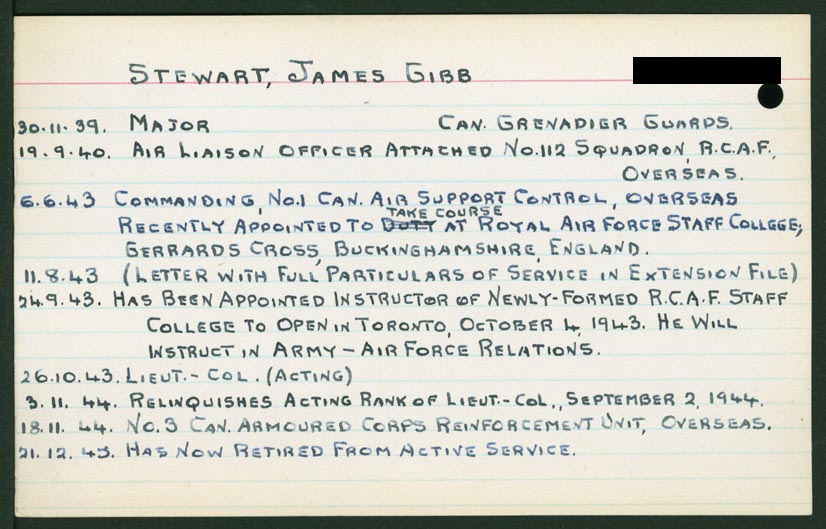 STEWART, JAMES GIBB
30.11.39. MAJOR CAN. GRENADIER GUARDS.
19.9.40. AIR LIAISON OFFICER ATTACHED NO.112 SQUADRON, R.C.A.F.,
OVERSEAS.
6.6.43 COMMANDING, NO.1 CAN. AIR SUPPORT CONTROL, OVERSEAS
TAKE COURSE
RECENTLY APPOINTED TO DUTY AT ROYAL AIR FORCE STAFF COLLEGE,
GERRARDS CROSS, BUCKINGHAMSHIRE, ENGLAND.
11.8.43 (LETTER WITH FULL PARTICULARS OF SERVICE IN EXTENSION FILE)
24.9.43. HAS BEEN APPOINTED INSTRUCTOR OF NEWLY-FORMED R.C.A.F. STAFF
COLLEGE TO OPEN IN TORONTO, OCTOBER 4, 1943. HE WILL
INSTRUCT IN ARMY-AIR FORCE RELATIONS.
26.10.43. LIEUT.-COL. (ACTING)
3.11.44. RELINQUISHES ACTING RANK OF LIEUT.-COL., SEPTEMBER 2, 1944.
18.11.44. NO.3 CAN. ARMOURED CORPS REINFORCEMENT UNIT, OVERSEAS.
21.12.45. HAS NOW RETIRED FROM ACTIVE SERVICE.